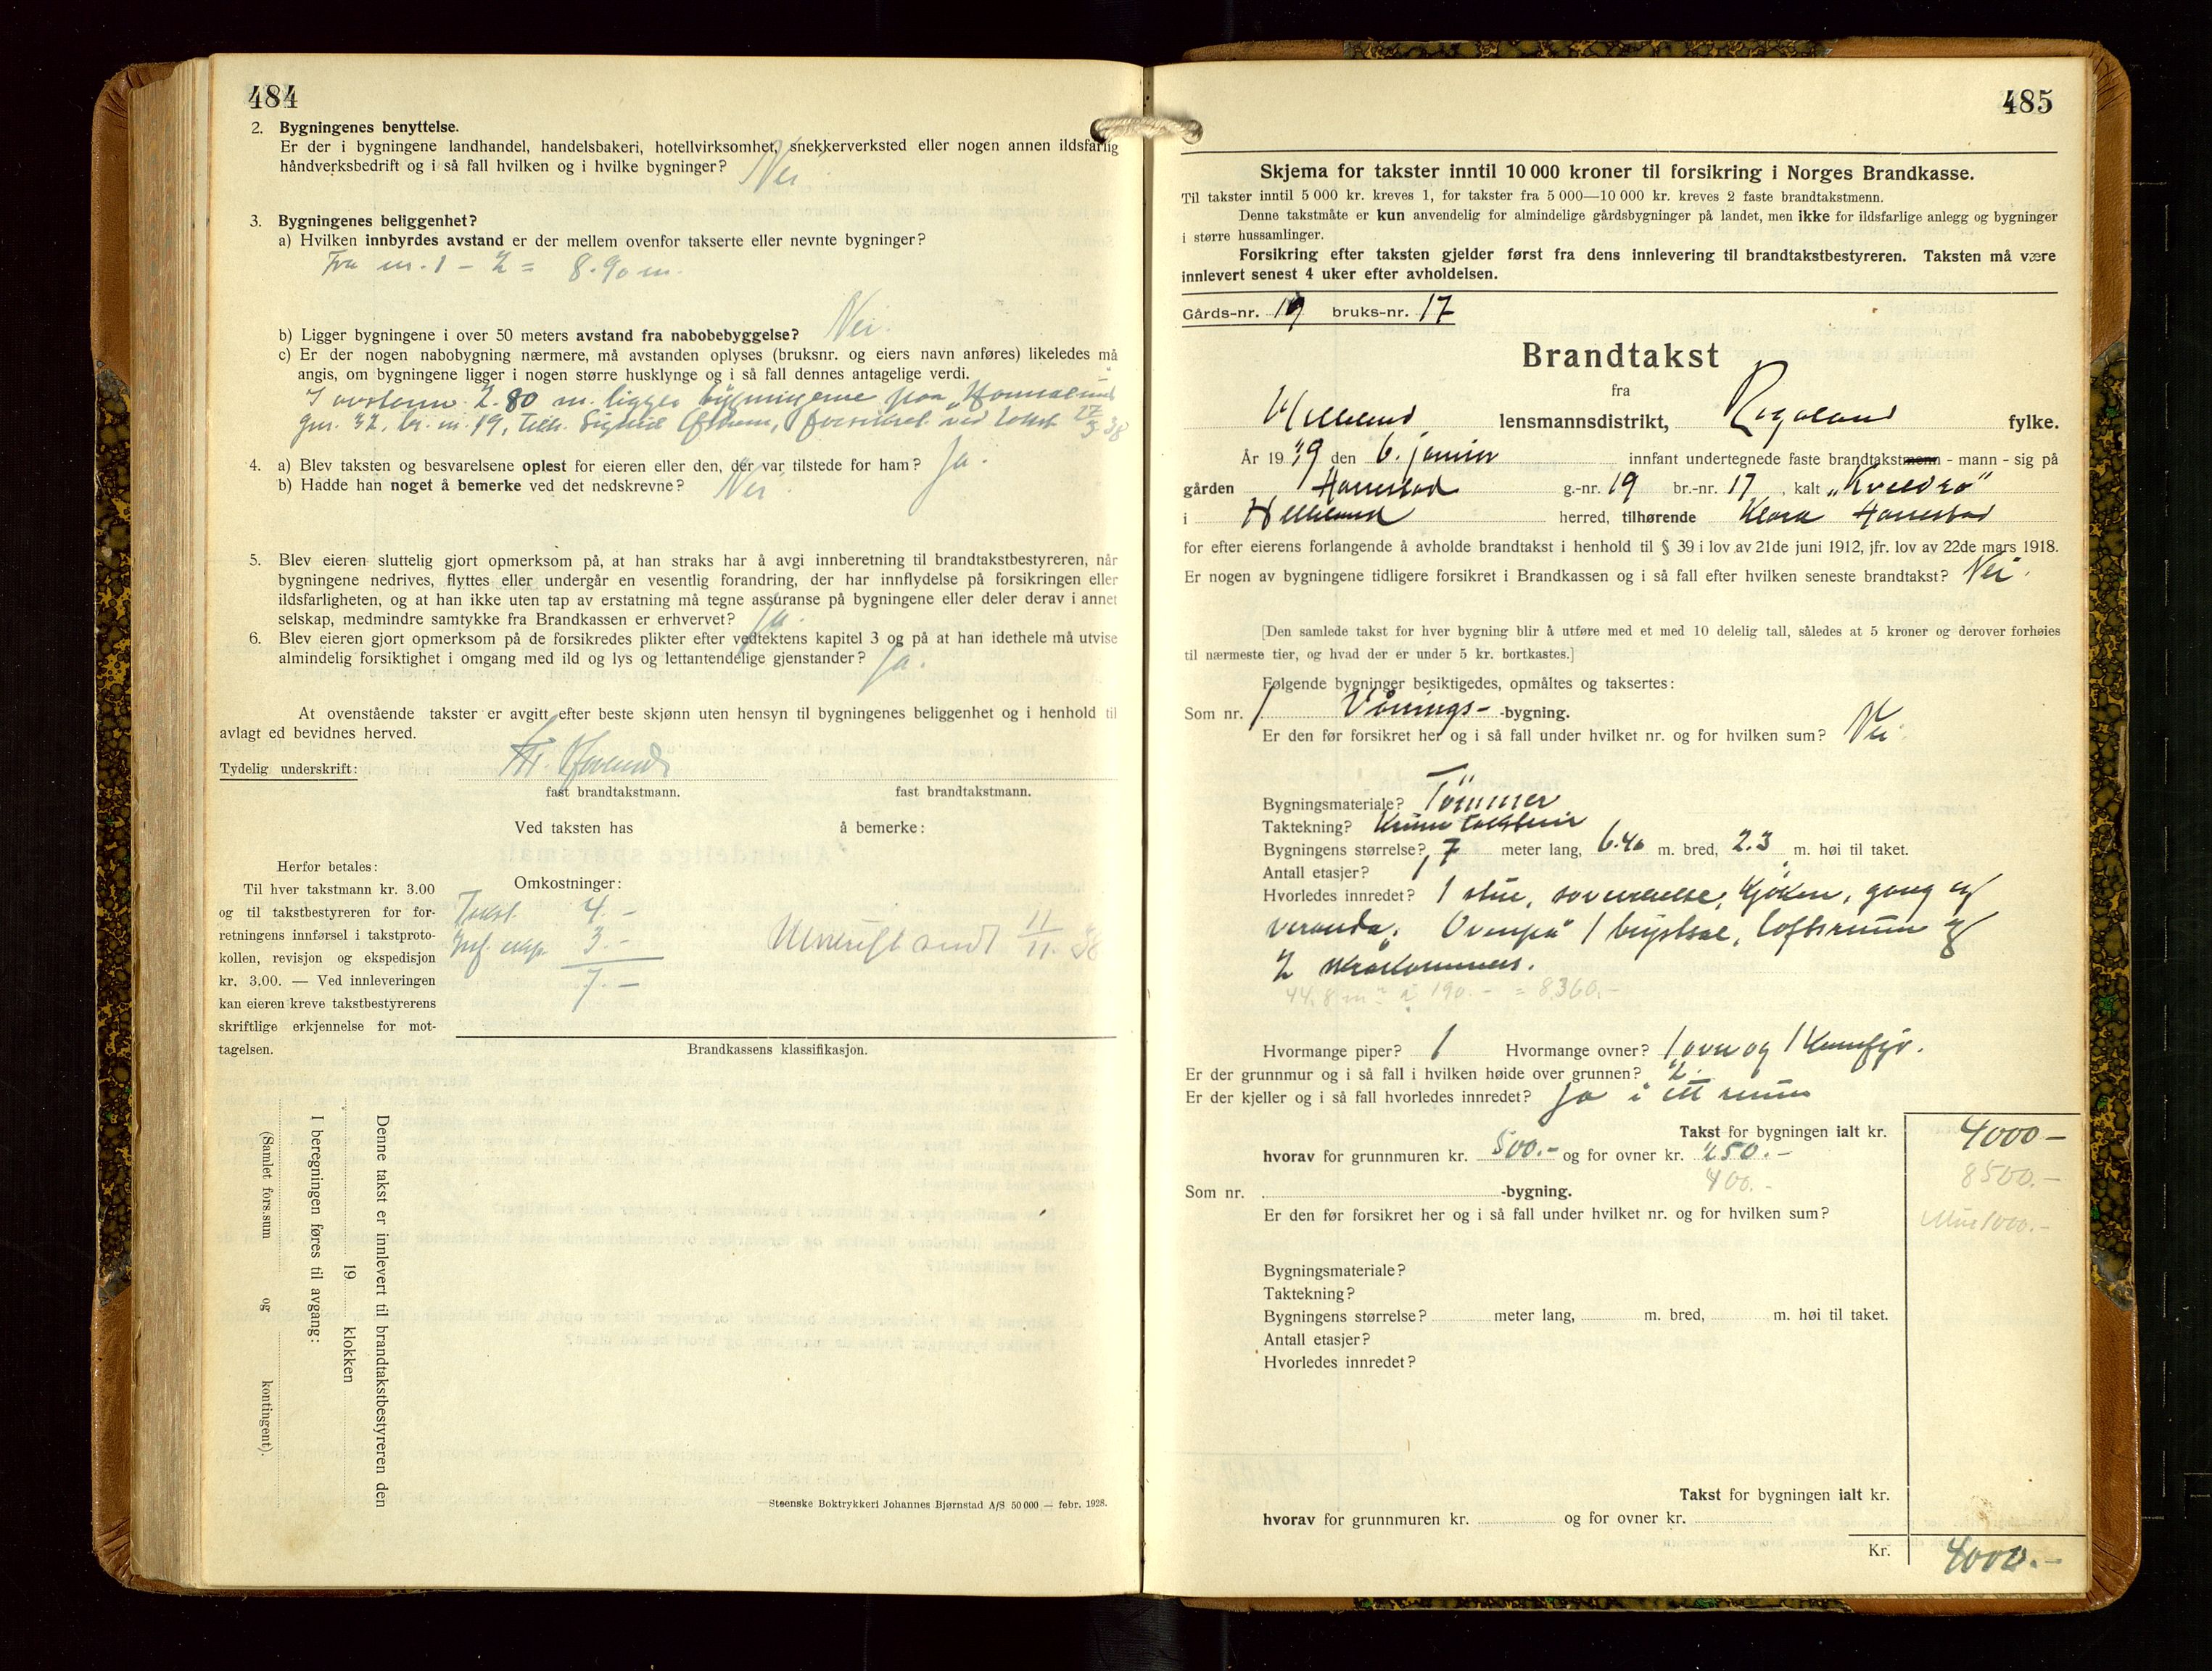 484
2. Bygningenes benyttelse.
Er der i bygningene landhandel, handelsbakeri, hotellvirksomhet, snekkerverksted eller nogen annen ildsfarlig
håndverksbedrift og i så fall hvilken og i hvilke bygninger? Nei
3. Bygningenes beliggenhet?
a) Hvilken innbyrdes avstand er der mellem ovenfor takserte eller nevnte bygninger?
Fra nr. 1 - 2 = 8.90 m.
b) Ligger bygningene i over 50 meters avstand fra nabobebyggelse? Nei.
c) Er der nogen nabobygning nærmere, må avstanden oplyses (bruksnr. og eiers navn anføres) likeledes må
angis, om bygningene ligger i nogen større husklynge og i så fall dennes antagelige verdi.
I avstann 2.80 m. ligger bygningene paa
gnr. 32, br. nr. 19, Tilh. forsikret ved takst 27/5 38
4. a) Blev taksten og besvarelsene oplest for eieren eller den, der var tilstede for ham? Ja.
b) Hadde han noget å bemerke ved det nedskrevne? Nei
5. Blev eieren sluttelig gjort opmerksom på, at han straks har å avgi innberetning til brandtakstbestyreren, når
bygningene nedrives, flyttes eller undergår en vesentlig forandring, der har innflydelse på forsikringen eller
ildsfarligheten, og at han ikke uten tap av erstatning må tegne assuranse på bygningene eller deler derav i annet
selskap, medmindre samtykke fra Brandkassen er erhvervet? Ja.
6. Blev eieren gjort opmerksom på de forsikredes plikter efter vedtektens kapitel 3 og på at han idethele må utvise
almindelig forsiktighet i omgang med ild og lys og lettantendelige gjenstander? Ja.
At ovenstående takster er avgitt efter beste skjønn uten hensyn til bygningenes beliggenhet og i henhold til
avlagt ed bevidnes herved.
Tydelig underskrift:
fast brandtakstmann. fast brandtakstmann.
Ved taksten has å bemerke:
Herfor betales:
Til hver takstmann kr. 3.00
og til takstbestyreren for for-
retningens innførsel i takstproto-
kollen, revisjon og ekspedisjon
kr. 3.00. — Ved innleveringen
kan eieren kreve takstbestyrerens
skriftlige erkjennelse for mot-
tagelsen.
Omkostninger:
Takst 4.-
Inf. exp. 3.-
7.-
Utskrift sendt 11/11. 38
Brandkassens klassifikasjon.
Denne takst er innlevert til brandtakstbestyreren den
19 klokken
I beregningen føres til avgang:
(Samlet fors.sum og kontingent).
Steenske Boktrykkeri Johannes Bjørnstad A/S 50 000 — febr. 1928.
485
Skjema for takster inntil 10 000 kroner til forsikring i Norges Brandkasse.
Til takster inntil 5 000 kr. kreves 1, for takster fra 5 000—10 000 kr. kreves 2 faste brandtakstmenn.
Denne takstmåte er kun anvendelig for almindelige gårdsbygninger på landet, men ikke for ildsfarlige anlegg og bygninger
i større hussamlinger.
Forsikring efter taksten gjelder først fra dens innlevering til brandtakstbestyreren. Taksten må være
innlevert senest 4 uker efter avholdelsen.
Gårds-nr. 19 bruks-nr. 17
Brandtakst
fra
Helleland lensmannsdistrikt, Rogaland fylke.
År 1939 den 6. januar innfant undertegnede faste brandtakstmenn - mann - sig på
gården g.-nr. 19 br.-nr. 17, kalt „Kveldro"
i Helleland herred, tilhørende Klara
for efter eierens forlangende å avholde brandtakst i henhold til § 39 i lov av 21de juni 1912, jfr. lov av 22de mars 1918.
Er nogen av bygningene tidligere forsikret i Brandkassen og i så fall efter hvilken seneste brandtakst? Nei.
[Den samlede takst for hver bygning blir å utføre med et med 10 delelig tall, således at 5 kroner og derover forhøies
til nærmeste tier, og hvad der er under 5 kr. bortkastes.]
Følgende bygninger besiktigedes, opmåltes og taksertes:
Som nr. 1 Vånings- -bygning.
Er den før forsikret her og i så fall under hvilket nr. og for hvilken sum? Nei
Bygningsmateriale? Tömmer
Taktekning?
Bygningens størrelse? 7 meter lang, 6.40 m. bred, 2.3 m. høi til taket.
Antall etasjer? 1
Hvorledes innredet? 1 stue, soveværelse, kjöken, gang og
veranda. Ovenpå 1 loftsrum og
2
44.8 m² à 190.- = 8.360.-
Hvormange piper? 1 Hvormange ovner? 1 ovn og 1 Komfyr.
Er der grunnmur og i så fall i hvilken høide over grunnen? 2.
Er der kjeller og i så fall hvorledes innredet? Ja i ett rum
Takst for bygningen ialt kr. 4000-
hvorav for grunnmuren kr. 500.- og for ovner kr. 250.-
400.-
8500.-
1000.-
Som nr. -bygning.
Er den før forsikret her og i så fall under hvilket nr. og for hvilken sum?
Bygningsmateriale?
Taktekning?
Bygningens størrelse? meter lang, m. bred, m. høi til taket.
Antall etasjer?
Hvorledes innredet?
Takst for bygningen ialt kr.
hvorav for grunnmuren kr. og for ovner kr.
Kr. 4000.-